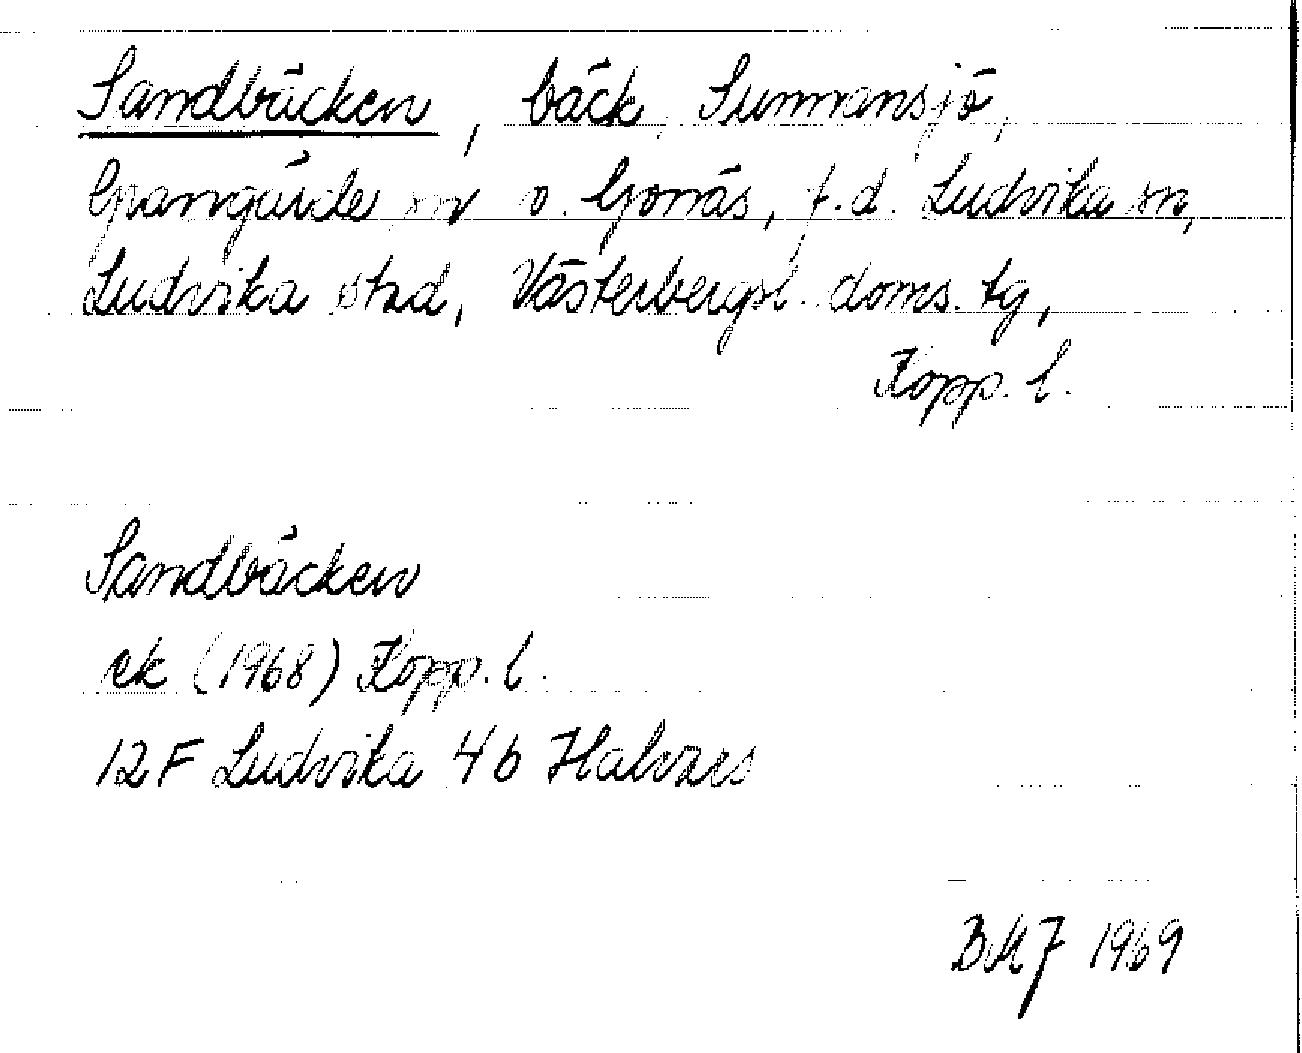 Sandbäcken, bäck, Sunnansjö,
Grangärde sn o. Gonäs, f.d. Ludvika sn,
Ludvika stad, Västerbergsl. doms. tg,
Kopp. l.
Sandbäcken
ek (1968) Kopp. l.
12 F Ludvika 4 b Halvars
BMJ 1969